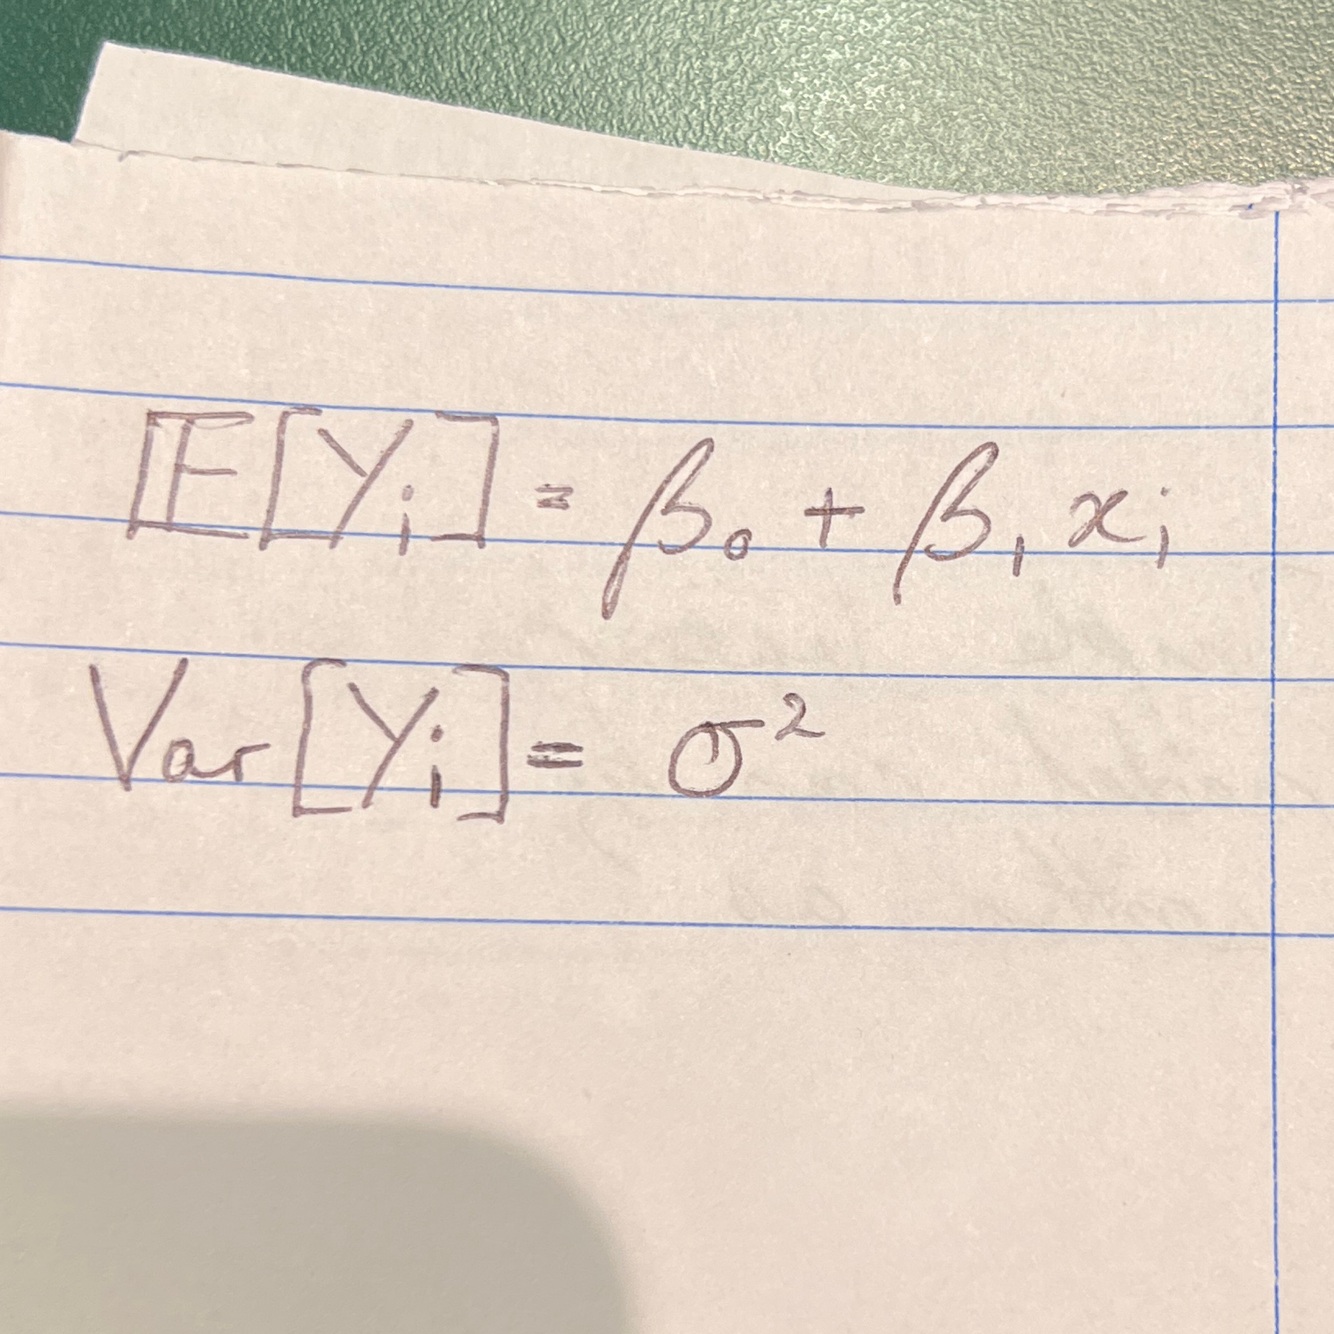 𝔼[Yᵢ] = β₀ + β₁ xᵢ
Var[Yᵢ] = σ²